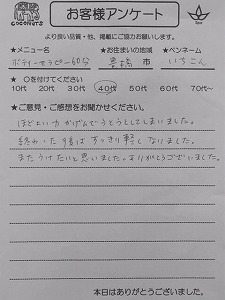 COCONUTS
お客様アンケート
より良い品質・他、掲載にご協力お願いします。
★メニュー名 ★お住まいの地域 ★ペンネーム
ボディセラピー60分 豊橋 市 いちこん
★ ○を付けてください
10代 20代 30代 40代 50代 60代 70代～
★ご意見・ご感想をお聞かせください。
ほどよい力かげんでうとうとしてしまいました。
終わった後はすっきり軽くなりました。
またうけたいと思いました。ありがとうございました。
本日はありがとうございました。